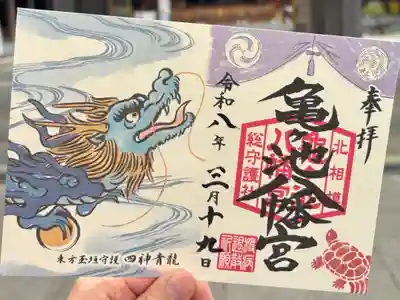 奉拝
北相模
亀ヶ池八幡宮
総守護社
令和八年三月十九日
東方玉垣守護 四神青龍